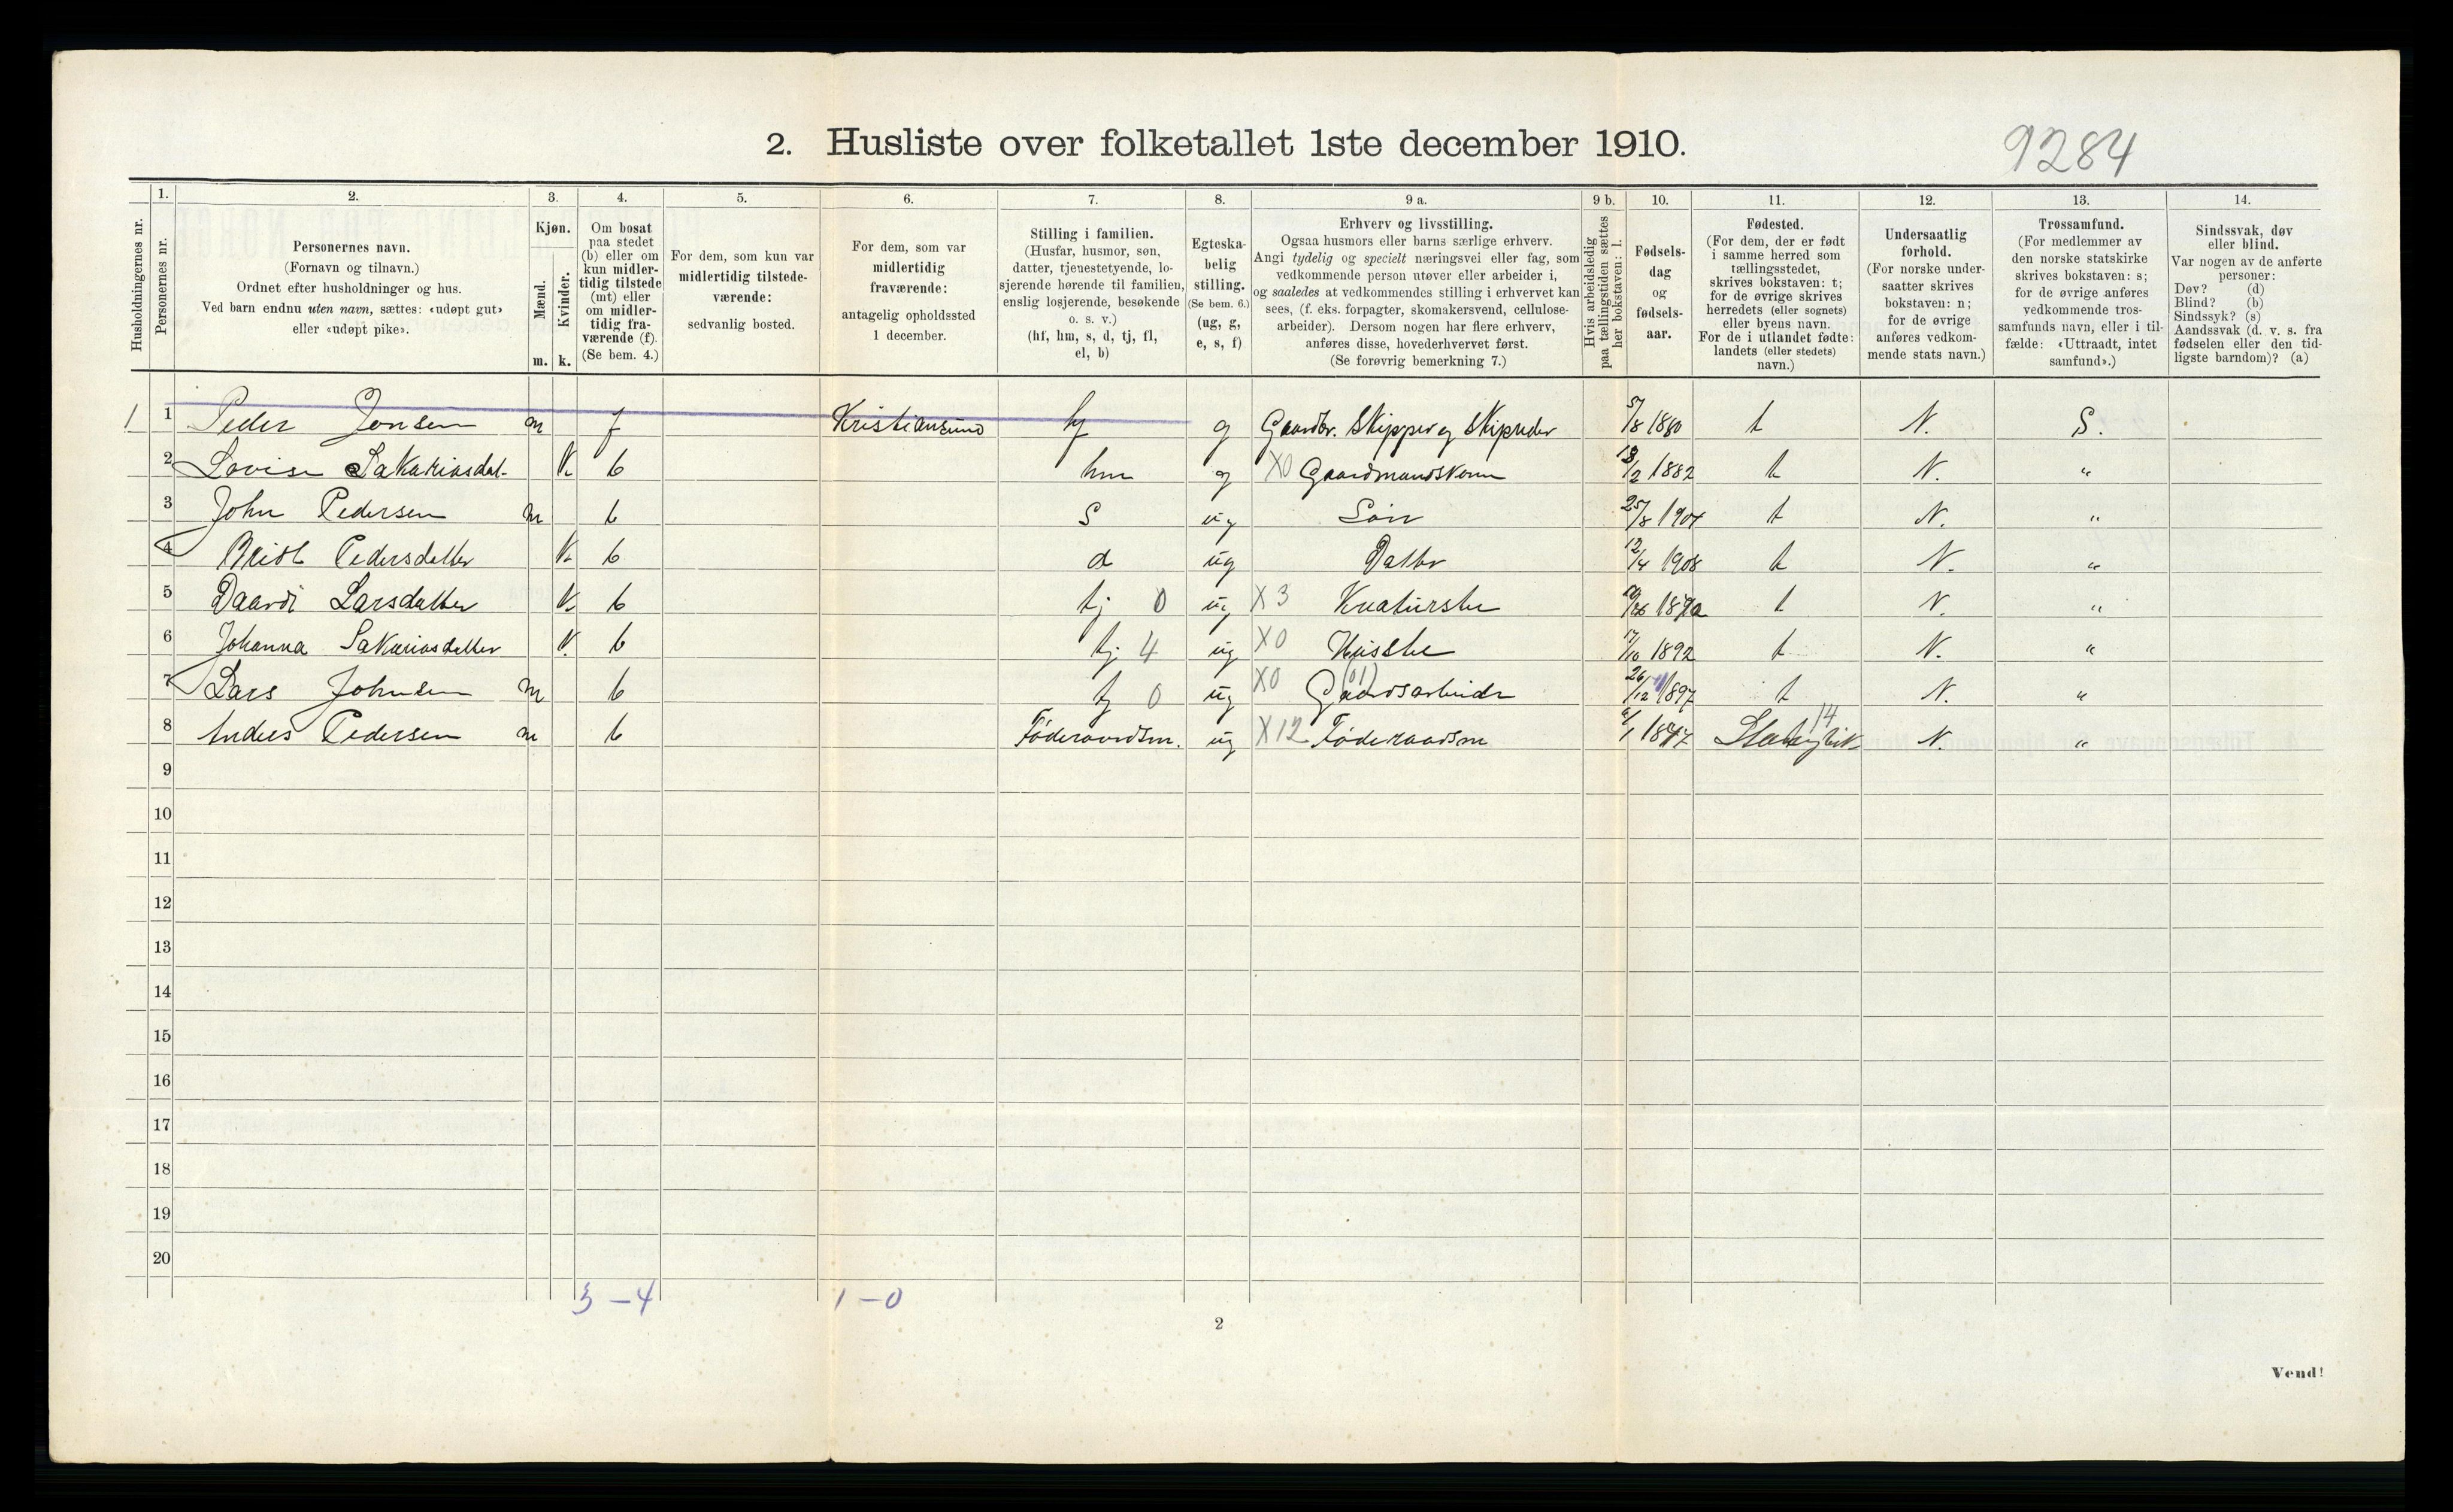 2. Husliste over folketallet 1ste december 1910.
9284
Husholdningernes nr.
1. Personernes nr.
2. Personernes navn. (Fornavn og tilnavn.) Ordnet efter husholdninger og hus. Ved barn endnu uten navn, sættes: «udøpt gut» eller «udøpt pike».
3. Kjøn. Mænd. m. Kvinder. k.
4. Om bosat paa stedet (b) eller om kun midlertidig tilstede (mt) eller om midlertidig fraværende (f). (Se bem. 4.)
5. For dem, som kun var midlertidig tilstedeværende: sedvanlig bosted.
6. For dem, som var midlertidig fraværende: antagelig opholdssted 1 december.
7. Stilling i familien. (Husfar, husmor, søn, datter, tjenestetyende, losjerende hørende til familien, enslig losjerende, besøkende o. s. v.) (hf, hm, s, d, tj, fl, el, b)
8. Egteskabelig stilling. (Se bem. 6.) (ug, g, e, s, f)
9 a. Erhverv og livsstilling. Ogsaa husmors eller barns særlige erhverv. Angi tydelig og specielt næringsvei eller fag, som vedkommende person utøver eller arbeider i, og saaledes at vedkommendes stilling i erhvervet kan sees, (f. eks. forpagter, skomakersvend, cellulosearbeider). Dersom nogen har flere erhverv, anføres disse, hovederhvervet først. (Se forøvrig bemerkning 7.)
9 b. Hvis arbeidsledig paa tællingstiden sættes her bokstaven: l.
10. Fødselsdag og fødselsaar.
11. Fødested. (For dem, der er født i samme herred som tællingsstedet, skrives bokstaven: t; for de øvrige skrives herredets (eller sognets) eller byens navn. For de i utlandet fødte: landets (eller stedets) navn.)
12. Undersaatlig forhold. (For norske undersaatter skrives bokstaven: n; for de øvrige anføres vedkommende stats navn.)
13. Trossamfund. (For medlemmer av den norske statskirke skrives bokstaven: s; for de øvrige anføres vedkommende trossamfunds navn, eller i tilfælde: «Uttraadt, intet samfund».)
14. Sindssvak, døv eller blind. Var nogen av de anførte personer: Døv? (d) Blind? (b) Sindssyk? (s) Aandssvak (d. v. s. fra fødselen eller den tidligste barndom)? (a)
1 1 Peder Jonsen m f Kristiansund hf g Gaardbr. Skipper og Skipreder 5/8 1880 t N. S.
2 Lovise Sakariasdat. K. b hm g X0 Gaardmandskone /2 1882 t N. "
3 John Pedersen m b S ug Søn 25/8 1904 t N. "
4 Pedersdatter K. b d ug Datter 12/4 1908 t N. "
5 Larsdatter K. b tj 0 ug X3 t N. "
6 Johanna Sakariasdatter K. b tj 4 ug X0 17/10 1892 t N. "
7 Lars Johnsen m b tj 0 ug X0 Gaardsarbeider (01) 26/12 1897 t N. "
8 Anders Pedersen m b Føderaadsm. ug X12 Føderaadsm 1847 14 N. "
9
10
11
12
13
14
15
16
17
18
19
20
3 – 4 1 – 0
2
Vend!